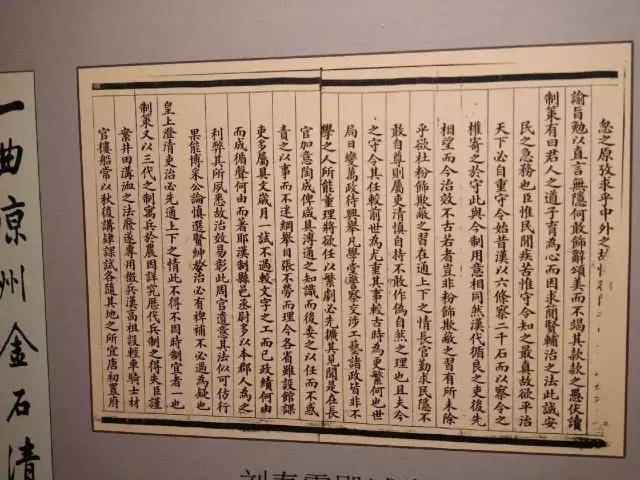 忽之原攷求乎中外之故
諭旨勉以直言無隱何敢飾辭頌美而不竭其款款之愚伏讀
制策有曰君人之道子育為心而因求簡賢輔治之法此誠安
民之急務也臣惟民閒疾苦惟守令知之最真故欲平治
天下必自重守令始昔漢以六條察二千石而以察令之
權寄之於守此與今制用意相同然漢代循良之吏後先
相望而今治效不古若者豈非粉飾欺蔽之習有所未除
乎欲杜粉飾欺蔽之習在通上下之情長官勤求民隱不
敢自尊則屬吏清慎自持不敢作偽自然之理也且夫今
之守令其任較前世為尤重其事較古時為更繁何也世
局日變萬政待興舉凡學堂警察交涉工藝諸政皆非不
學之人所能董理將欲任以繁劇必先擴其見聞是在長
官加意陶成俾咸具溥通之知識而後委之以任而不惑
責之以事而不迷綱舉目張不勞而理今各省雖設館課
吏多屬具文歲月一試不過較文字之工而已政績何由
而成循聲何由而著耶漢制縣邑丞尉多以本郡人為之
利弊其所夙悉故治效易彰此周官遺意其法似可仿行
果能博采公論慎選賢紳治必有裨補不必過為疑也
皇上澄清吏治必先通上下之情此不得不因時制宜者一也
制策又以三代之制寓兵於農因詳究歷代兵制之得失臣謹
案井田溝洫之法廢遂專用徵兵漢高祖設輕車騎士材
官樓船常以秋後講肄課試各隨其地之所宜唐初置府
一曲凉州金石清